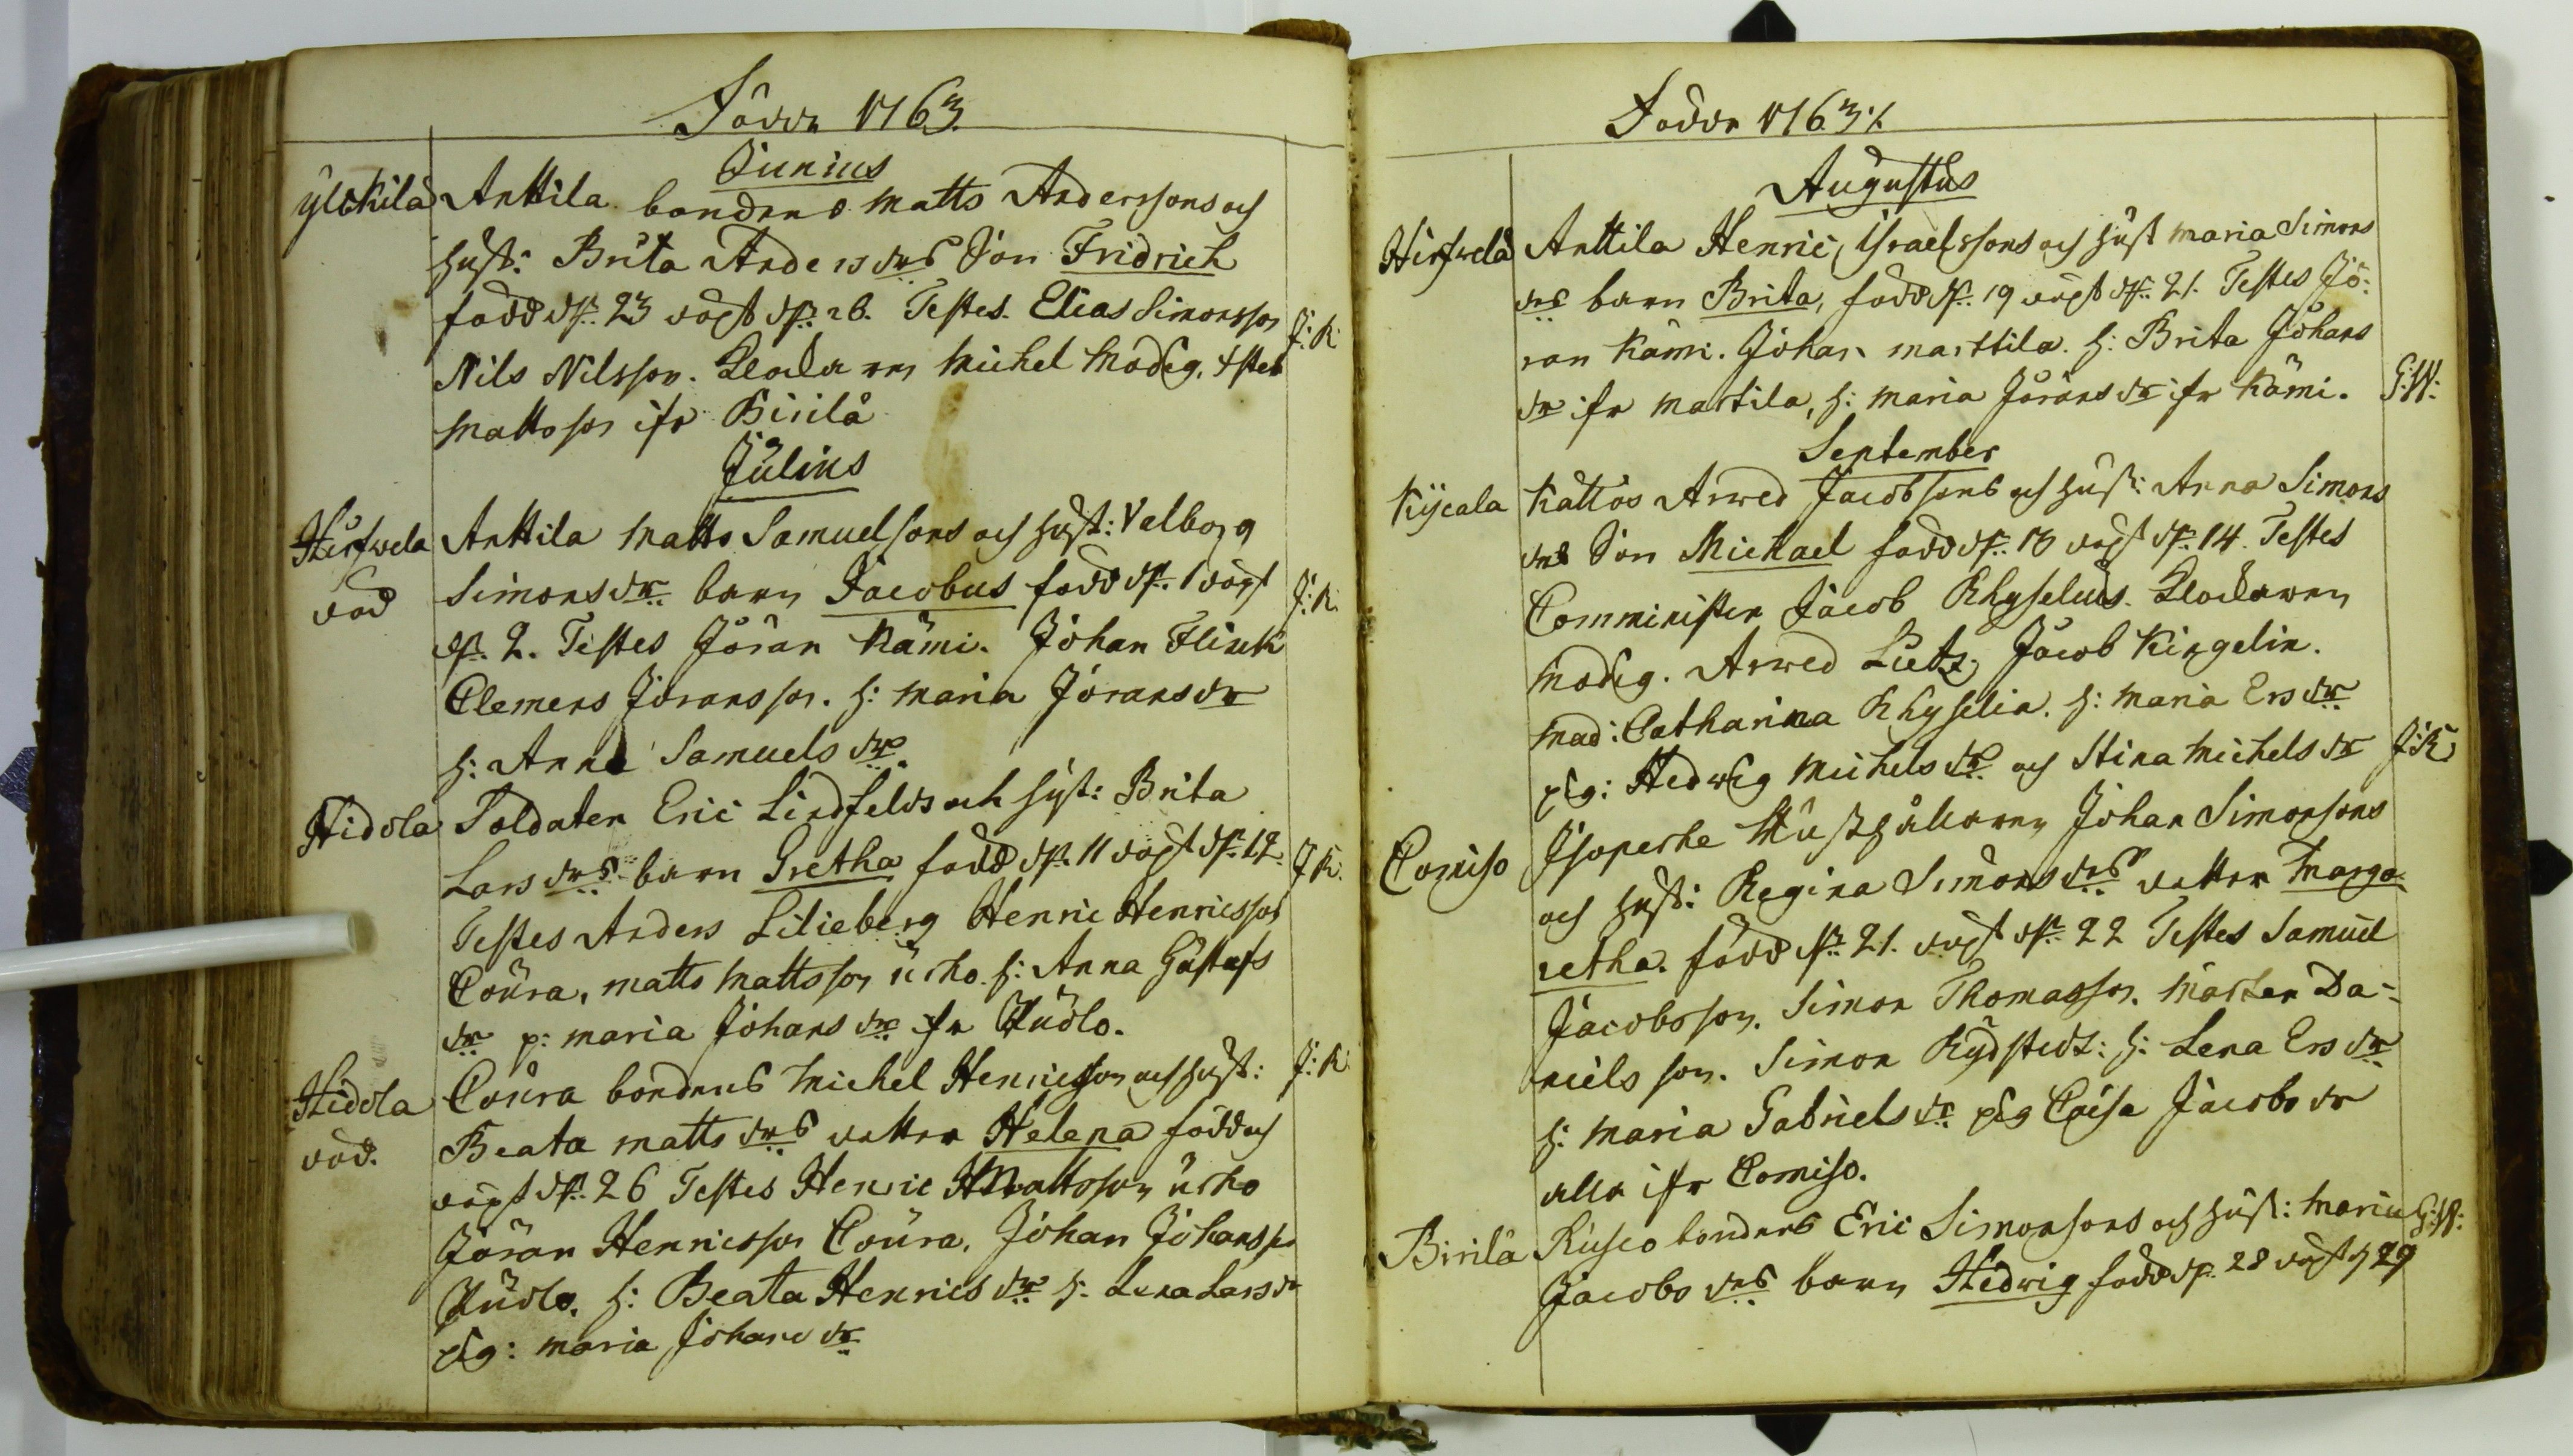 Födde 1763.
Junius
Ylökilä Anttila bondens Matts Anderssons och
hust: Brita Andersdrs Son Fridrich
född d. 23 döpt d. 26. Testes. Elias Simonsson J:K:
Nils Nilsson. Klockaren Michel Modig,
Mattsson ifr Birilä
Julius
Hirfwelä Anttila Matts Samuelsons och hust: Valborg
död Simonsdr barn Jacobus född d. 1 döpt J:K:
d. 2. Testes Jöran Kämi. Johan Flinck
Clemens Jöransson. h: Maria Jöransdr
h: Anna Samuelsdr.
Hidola Soldaten Eric Lindfelds och hust: Brita
Larsdrs barn Gretha född d. 11 döpt d. 12. J:K:
Testes Anders Lilieberg Henric Henricsson
Coura, Matts Mattsson urho. h: Anna Gustafs
dr p: Maria Johansdr ifr Kudlo.
Hidola Coura bondens Michel Henricsson och hust: J:K:
död. Beata Mattsdrs dotter Helena född och
döpt d. 26 Testes Henric Mattsson urho
Jöran Henricsson Coura, Johan Johansson
Kudlo. h: Beata Henricsdr h: Lena Larsdr
pig: Maria Johansdr
Födde 1763./.
Augustus
Hirfwelä Anttila Henric Israelssons och hust Maria Simons
drs barn Brita, född d. 19 döpt d. 21. Testes Jö:
ran Kämi. Johan Marttila. h: Brita Johans
dr ifr Martila, h: Maria Jöransdr ifr Kämi. G:W:
September
Kycala Kattos Arwed Jacobsons och hust: Anna Simons
drs Son Michael född d. 13 döpt d. 14. Testes
Comminister Jacob Rhyselius. Klockaren
Modig. Arwed Lietz, Jacob Kingelin.
Mad: Catharina Rhyselia. h: Maria Ersdr
pig: Hedwig Michelsdr och Stina Michelsdr J:K:
Comiso Isoperhe Hushållaren Johan Simonsons
och hust: Regina Simonsdrs dotter Marga:
retha. född d. 21. döpt d. 22 Testes Samuel
Jacobsson. Simon Thomasson. Mårten Da:
nielsson. Simon Rydstedt: h: Lena Ersdr
h: Maria Gabrielsdr pig Caisa Jacobsdr
alla ifr Comiso.
Birilä Rusco bondens Eric Simonsons och hust: Maria G:W:
Jacobsdrs barn Hedwig född d. 28 döpt d 29